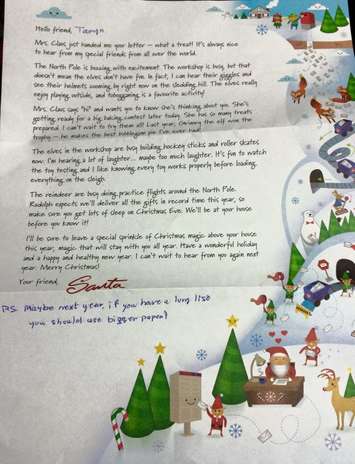 Hello friend, Taryn
Mrs. Claus just handed me your letter – what a treat! It's always nice
to hear from my special friends from all over the world.
The North Pole is buzzing with excitement. The workshop is busy, but that
doesn't mean the elves don't have fun. In fact, I can hear their giggles and
see their helmets zooming by right now on the sledding hill. The elves really
enjoy playing outside, and tobogganing is a favourite activity!
Mrs. Claus says "hi" and wants you to know she's thinking about you. She's
getting ready for a big baking contest later today. She has so many treats
prepared. I can't wait to try them all! Last year, the elf won the
trophy – he makes the best pie I've ever had!
The elves in the workshop are busy building hockey sticks and roller skates
now. I'm hearing a lot of laughter... maybe too much laughter. It's fun to watch
the toy testing, and I like knowing every toy works properly before loading
everything on the sleigh.
The reindeer are busy doing practice flights around the North Pole.
Rudolph expects we'll deliver all the gifts in record time this year, so
make sure you get lots of sleep on Christmas Eve. We'll be at your house
before you know it!
I'll be sure to leave a special sprinkle of Christmas magic above your house
this year, magic that will stay with you all year. Have a wonderful holiday
and a happy and healthy new year. I can't wait to hear from you again next
year. Merry Christmas!
Your friend, Santa
PS Maybe next year, if you have a long list
you should use bigger paper!